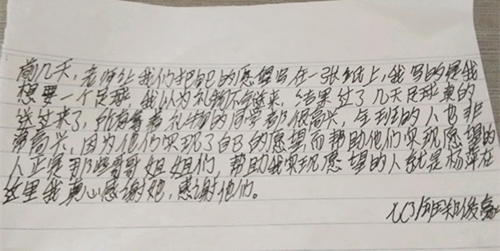 前几天，老师让我们把自己的愿望写在一张纸上，我写的是我
想要一个足球，我以为礼物不会送来，结果过了几天足球真的
送过来了，所有拿着礼物的同学都很高兴，年班的人也非
常高兴，因为他们实现了自己的愿望而帮助他们实现愿望的
人正是那些哥哥姐姐们，帮助我实现愿望的人就是杨萍在
这里我真心感谢她，感谢他们。